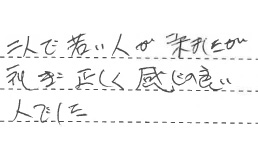 二人で若い人が来ましたが
礼ぎ正しく感じの良い
人でした